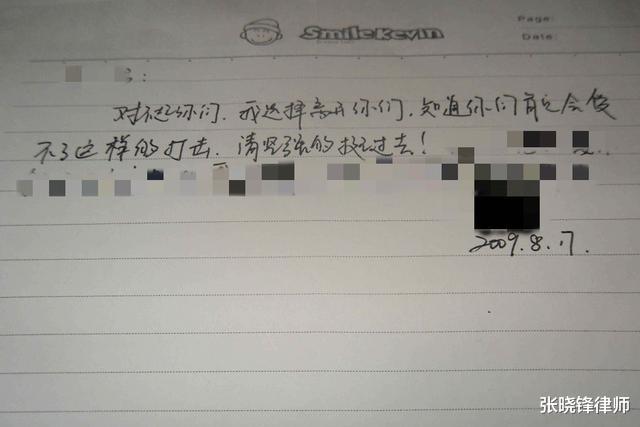 Smile Kevin
Page:
Date:
对不起你们,我选择离开你们,知道你们肯定会受
不了这样的打击,请坚强的挺过去!
2009.8.17.
张晓锋律师